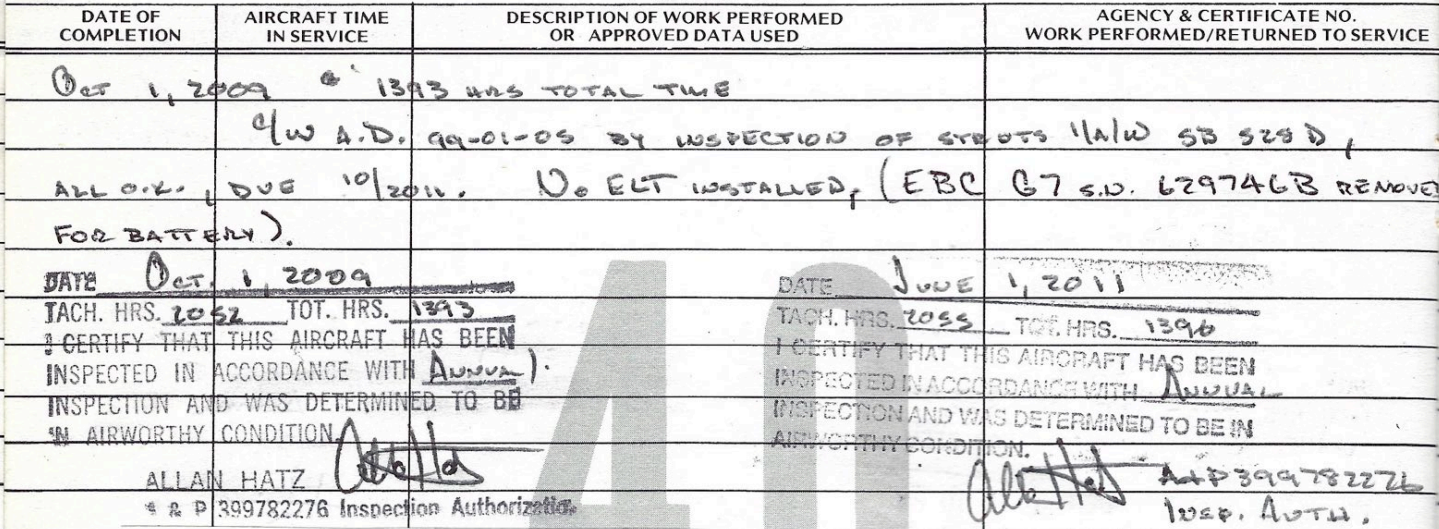 DATE OF COMPLETION
AIRCRAFT TIME IN SERVICE
DESCRIPTION OF WORK PERFORMED OR APPROVED DATA USED
AGENCY & CERTIFICATE NO. WORK PERFORMED/RETURNED TO SERVICE
Oct 1, 2009 @ 1393 HRS TOTAL TIME
C/W A.D. 99-01-05 BY INSPECTION OF STRUTS I/A/W SB 528D,
ALL O.K., DUE 10/2011. No ELT INSTALLED, (EBC G7 S.N. 629746B REMOVED
FOR BATTERY).
DATE Oct. 1, 2009
TACH. HRS. 2052 TOT. HRS. 1393
I CERTIFY THAT THIS AIRCRAFT HAS BEEN
INSPECTED IN ACCORDANCE WITH ANNUAL).
INSPECTION AND WAS DETERMINED TO BE
IN AIRWORTHY CONDITION
ALLAN HATZ
A & P 399782276 Inspection Authorization
DATE JUNE 1, 2011
TACH. HRS. 2055 TOT. HRS. 1396
I CERTIFY THAT THIS AIRCRAFT HAS BEEN
INSPECTED IN ACCORDANCE WITH ANNUAL
INSPECTION AND WAS DETERMINED TO BE IN
AIRWORTHY CONDITION.
A&P 399782276
INSP. AUTH.